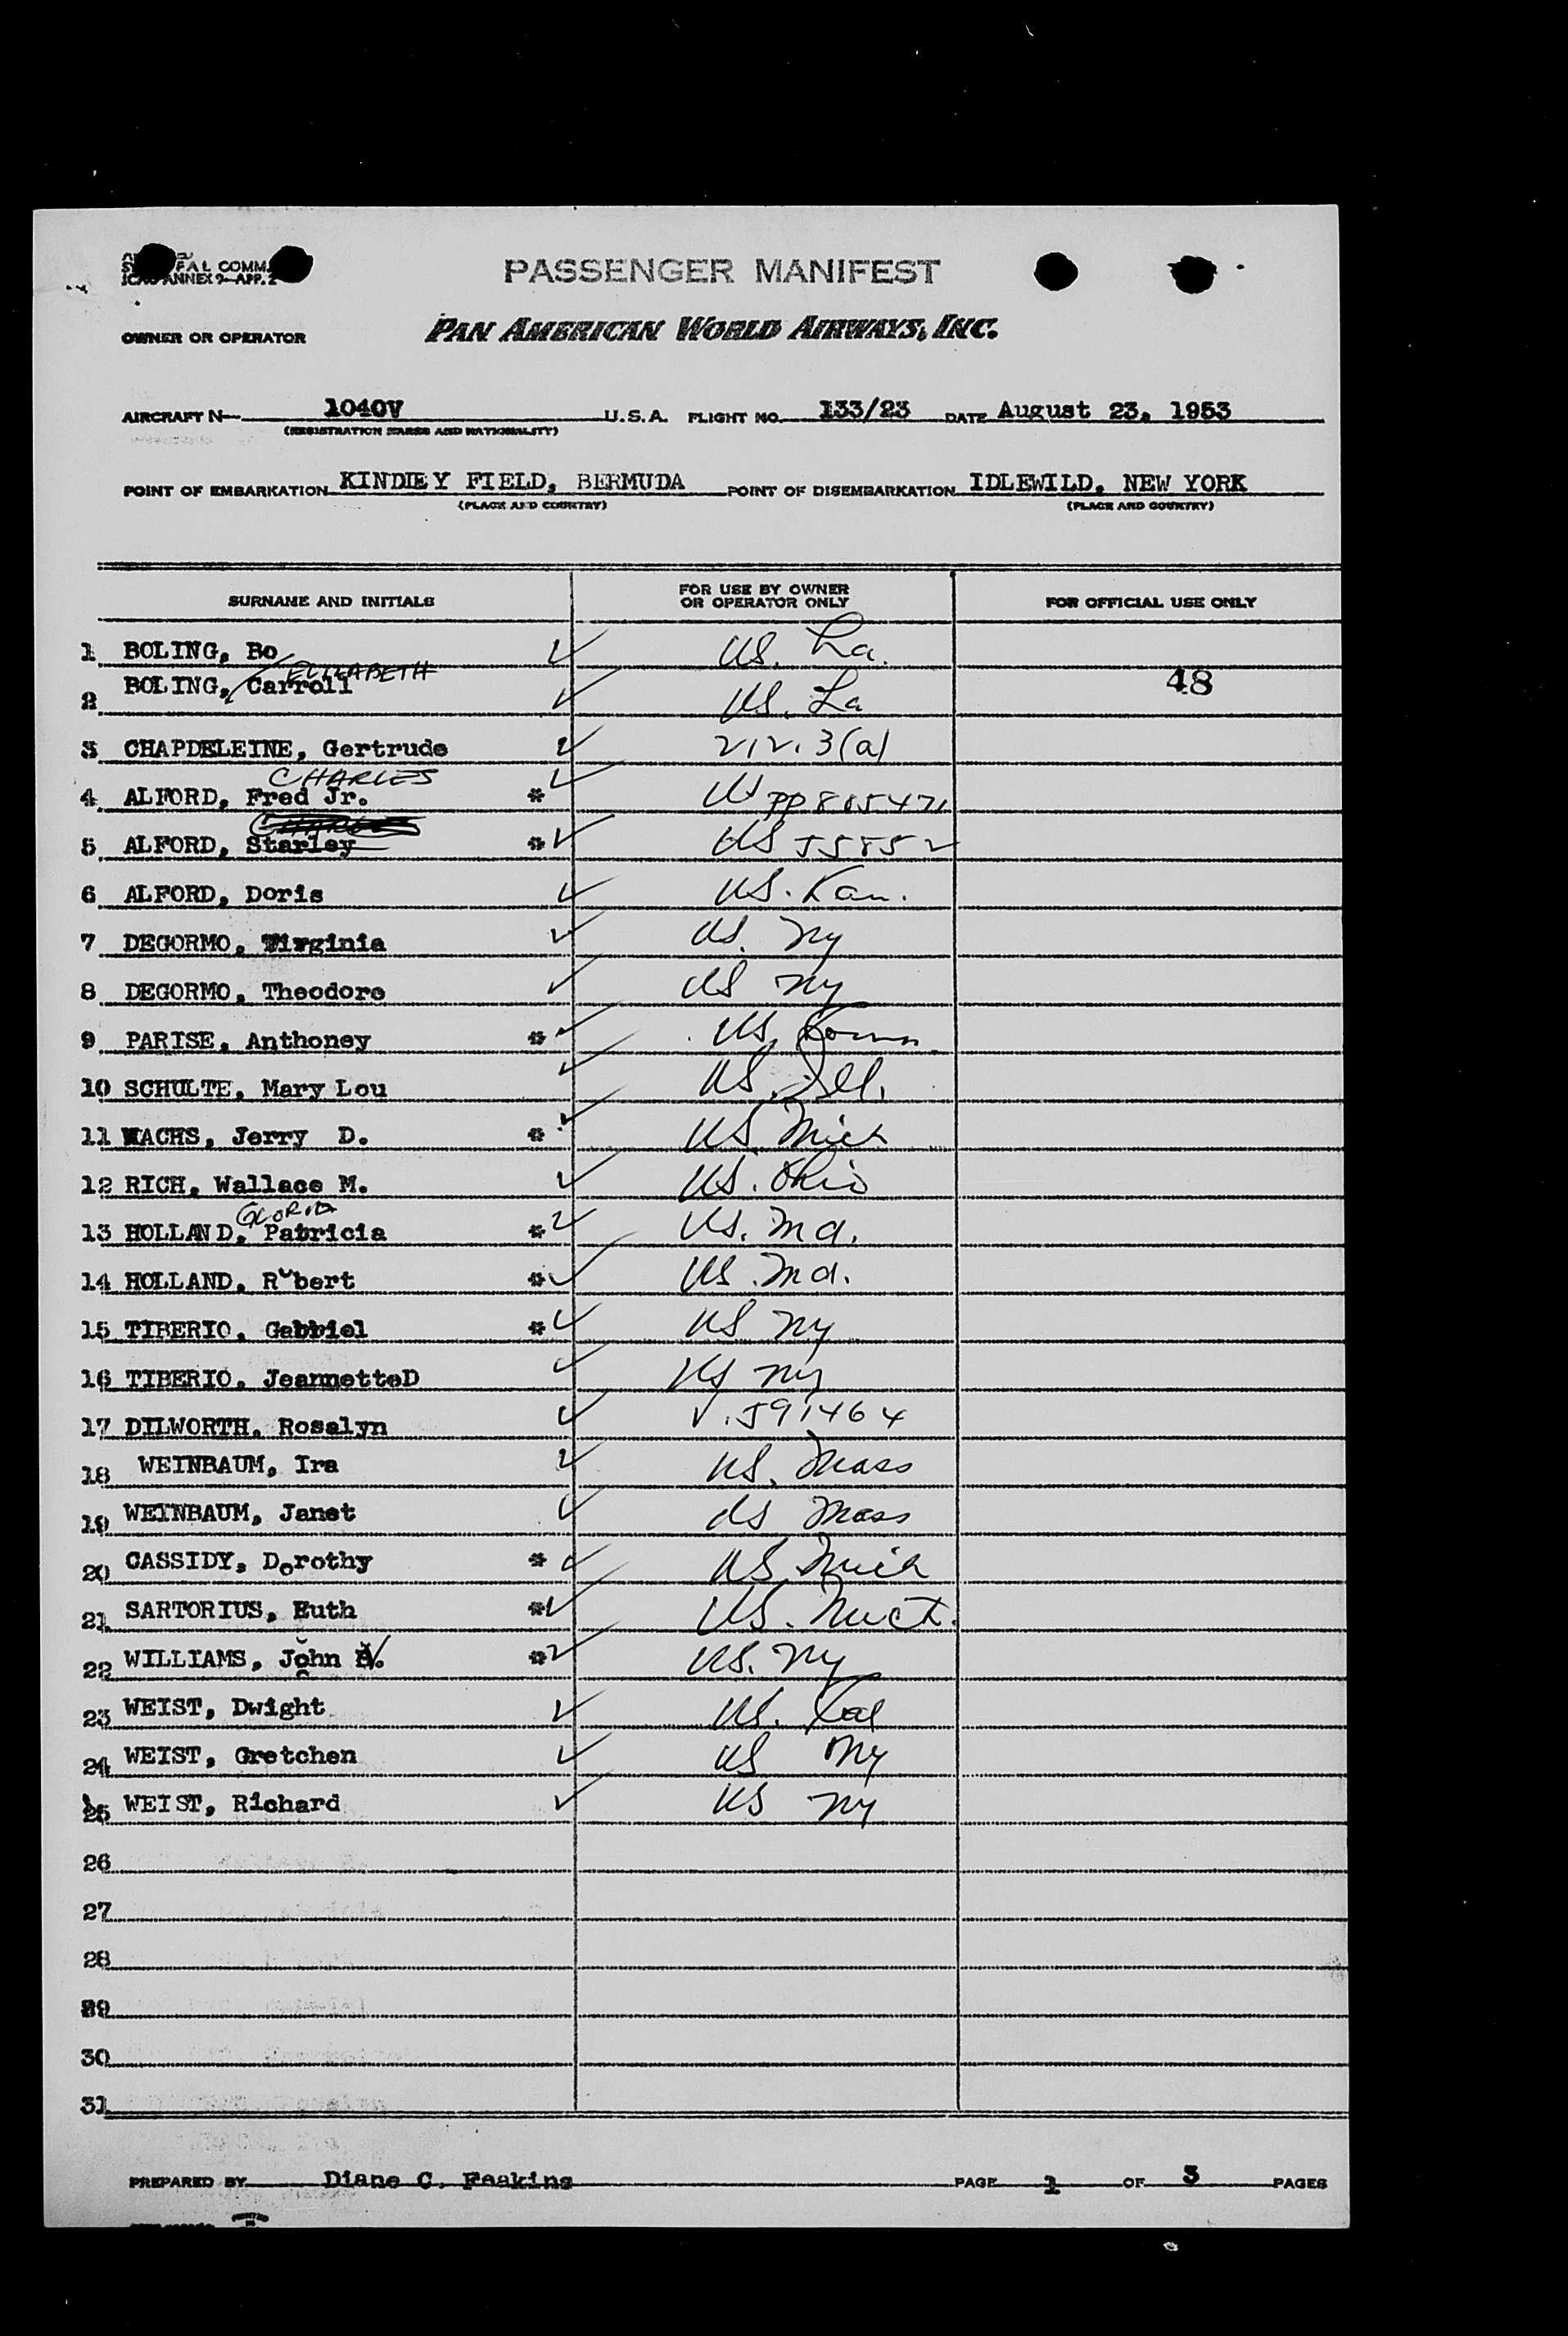 ICAO ANNEX 9—APP. 2
PASSENGER MANIFEST
OWNER OR OPERATOR PAN AMERICAN WORLD AIRWAYS, INC.
AIRCRAFT N— 1040V U.S.A. FLIGHT NO. 133/23 DATE August 23, 1953
(REGISTRATION MARKS AND NATIONALITY)
POINT OF EMBARKATION KINDLEY FIELD, BERMUDA POINT OF DISEMBARKATION IDLEWILD, NEW YORK
(PLACE AND COUNTRY) (PLACE AND COUNTRY)
SURNAME AND INITIALS FOR USE BY OWNER OR OPERATOR ONLY FOR OFFICIAL USE ONLY
1 BOLING, Bo ✓ US. La.
ELIZABETH
2 BOLING, Carroll ✓ US. La 48
3 CHAPDELEINE, Gertrude ✓ 212.3(a)
CHARLES
4 ALFORD, Fred Jr. * ✓ US PP 805471
CHARLES
5 ALFORD, Starley * ✓ US 55852
6 ALFORD, Doris ✓ US. Kan.
7 DEGORMO, Virginia ✓ US. NY
8 DEGORMO, Theodore ✓ US NY
9 PARISE, Anthoney * ✓ US. Conn.
10 SCHULTE, Mary Lou ✓ US. Ill.
11 WACHS, Jerry D. * ✓ US Mich
12 RICH, Wallace M. ✓ US. Ohio
GLORIA
13 HOLLAND, Patricia * ✓ US. Md.
14 HOLLAND, Robert * ✓ US. Md.
15 TIBERIO, Gabriel * ✓ US NY
16 TIBERIO, JeannetteD ✓ US NY
17 DILWORTH, Rosalyn ✓ V. 591464
18 WEINBAUM, Ira ✓ US. Mass
19 WEINBAUM, Janet ✓ US Mass
20 CASSIDY, Dorothy * ✓ US Mich
21 SARTORIUS, Ruth * ✓ US. Mich.
22 WILLIAMS, John V. * ✓ US. NY
23 WEIST, Dwight ✓ US. Cal
24 WEIST, Gretchen ✓ US NY
25 WEIST, Richard ✓ US NY
26
27
28
29
30
31
PREPARED BY Diane C. Feakins PAGE 1 OF 3 PAGES